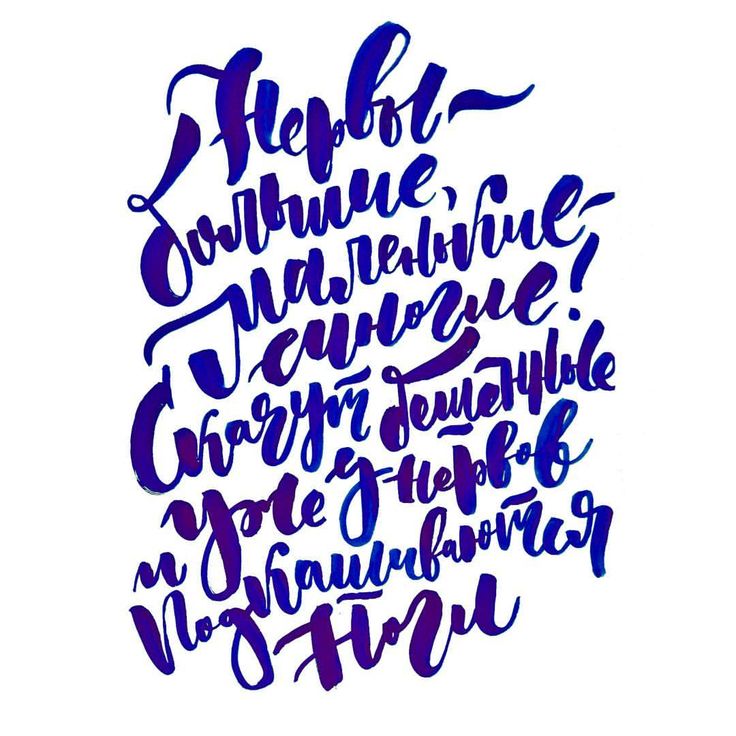 Нервы —
большие,
маленькие —
многие!
Скачут бешеные
и уже у нервов
подкашиваются
ноги